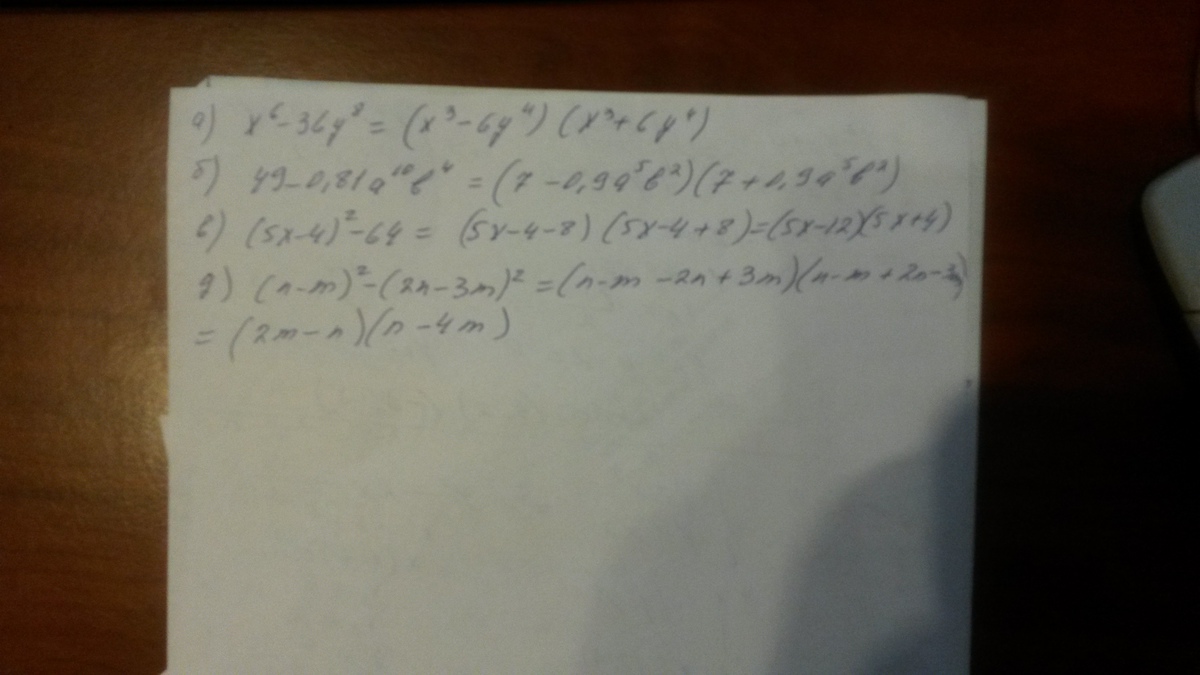 а) x⁶-36y⁸ = (x³-6y⁴) (x³+6y⁴)
б) 49-0,81a¹⁰b⁴ = (7-0,9a⁵b²)(7+0,9a⁵b²)
в) (5x-4)²-64 = (5x-4-8) (5x-4+8)=(5x-12)(5x+4)
д) (n-m)²-(2n-3m)² =(n-m-2n+3m)(n-m+2n-3m)
= (2m-n)(n-4m)